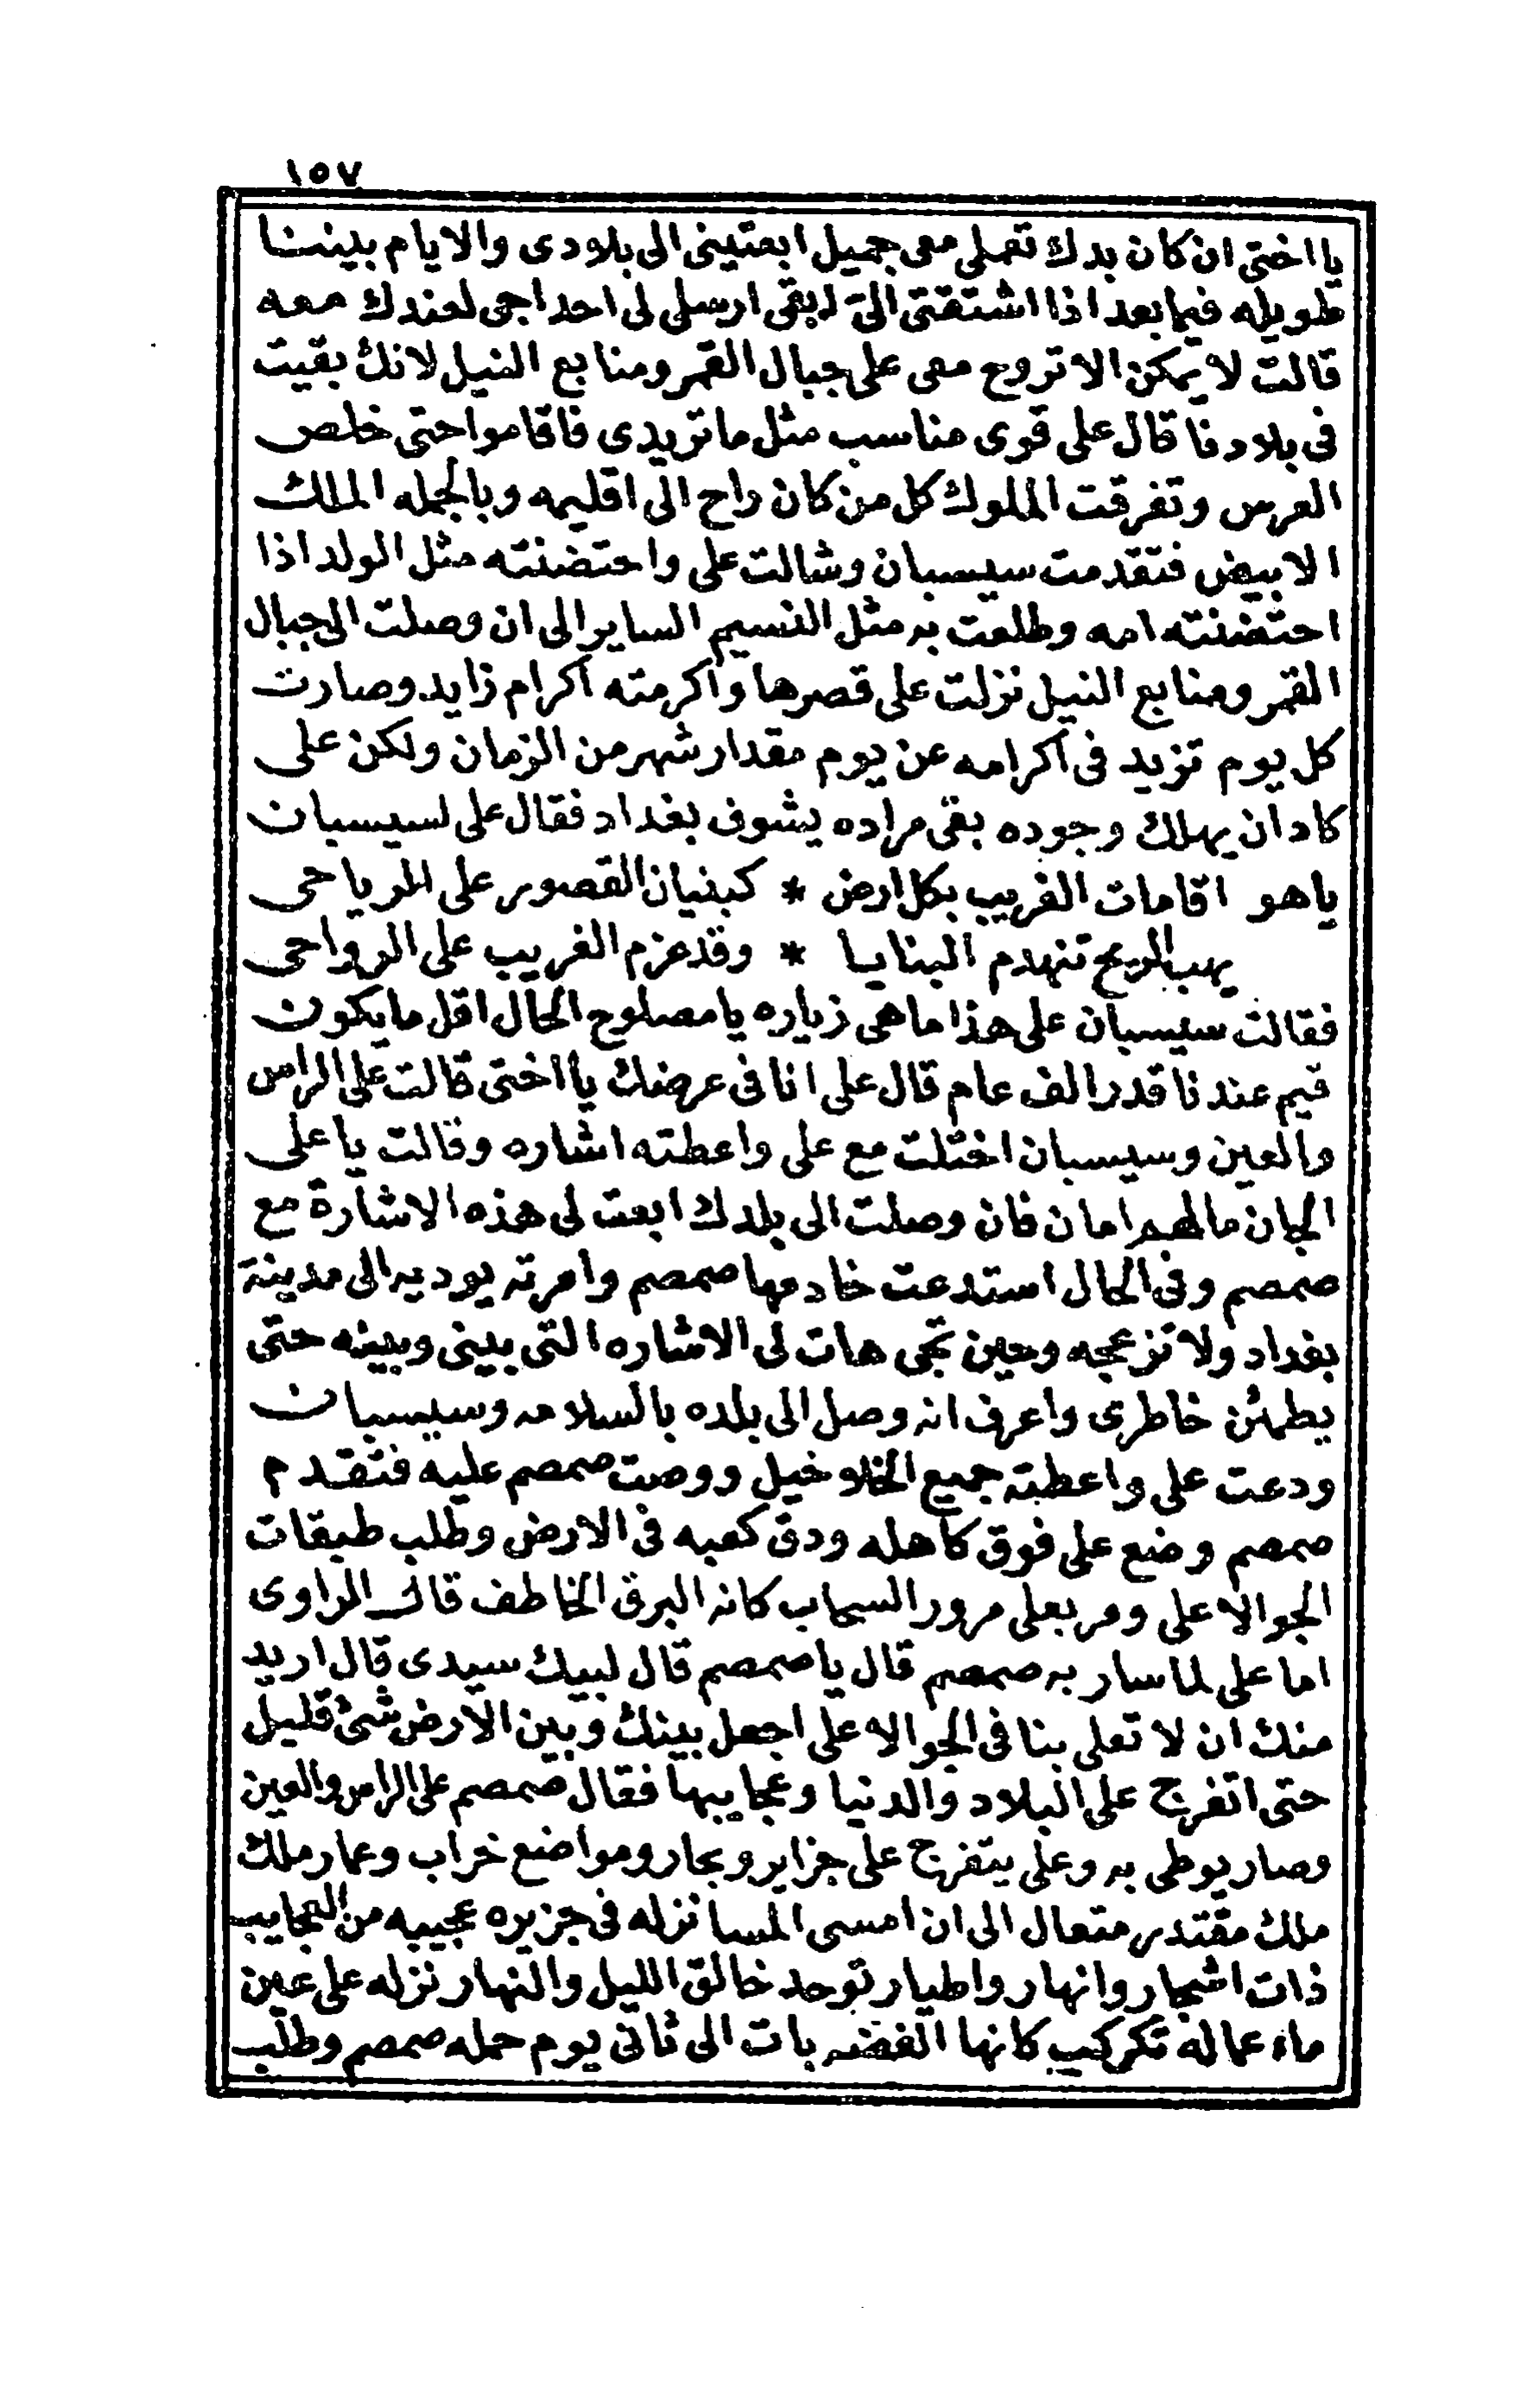 ١٥٧
يا اختى ان كان بدك تعملى معى جميل ابعتينى الى بلادى والايام بيننا
طويله فيما بعد اذا اشتقتى الىّ ابقى ارسلى لى احد اجى لعندك معه
قالت لا يمكن الا تروح معى على جبال القمر ومنابع النيل لانك بقيت
فى بلادنا قال على قوى مناسب مثل ما تريدى فاقاموا حتى خلص
العرس وتفرقت الملوك كل من كان راح الى اقليمه وبالجمله الملك
الابيض فتقدمت سيسبان وشالت على واحتضنته مثل الولد اذا
احتضنته امه وطلعت به مثل النسيم الساير الى ان وصلت الى جبال
القمر ومنابع النيل نزلت على قصرها واكرمته اكرام زايد وصارت
كل يوم تزيد فى اكرامه عن يوم مقدار شهر من الزمان ولكن على
كاد ان يهلك وجوده بقى مراده يشوف بغداد فقال على لسيسبان
ياهو اقامات الغريب بكل ارض * كبنيان القصور على الرياحى
يهب الريح تنهدم البنايا * وقد عزم الغريب على الرواحى
فقالت سيسبان على هذا ماهى زياره يا مصلوح الحال اقل ما يكون
قيم عندنا قدر الف عام قال على انا فى عرضك يا اختى قالت على الراس
والعين وسيسبان اختلت مع على واعطته اشاره وقالت يا على
الجان مالهم امان فان وصلت الى بلدك ابعت لى هذه الاشارة مع
صمصم وفى الحال استدعت خادمها صمصم وامرته يوديه الى مدينة
بغداد ولا تزعجه وحين تجى هات لى الاشاره التى بينى وبينه حتى
يطمئن خاطرى واعرف انه وصل الى بلده بالسلامه وسيسبان
ودعت على واعطته جميع الخلاخيل ووصت صمصم عليه فتقدم
صمصم وضع على فوق كاهله ودق كعبه فى الارض وطلب طبقات
الجو الاعلى ومر بعلى مرور السحاب كانه البرق الخاطف قال الراوى
اما على لما سار به صمصم قال يا صمصم قال لبيك سيدى قال اريد
منك ان لا تعلى بنا فى الجو الاعلى اجعل بينك وبين الارض شئ قليل
حتى اتفرج على البلاد والدنيا وعجايبها فقال صمصم على الراس والعين
وصار يوطى به وعلى يتفرج على جزاير وبحار ومواضع خراب وعمار ملك
ملك مقتدر متعال الى ان امسى المسا نزله فى جزيره عجيبه من العجايب
ذات اشجار وانهار واطيار توحد خالق الليل والنهار نزله على عين
ماء عماله تكركب كانها الفضه بات الى ثانى يوم حمله صمصم وطلب